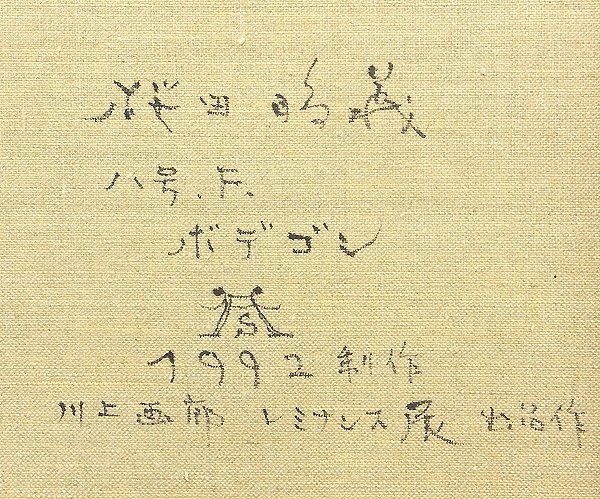 桜田晴義
八号.F.
ボデゴン
S
1992 制作
川上画廊 レミナンス展 出品作